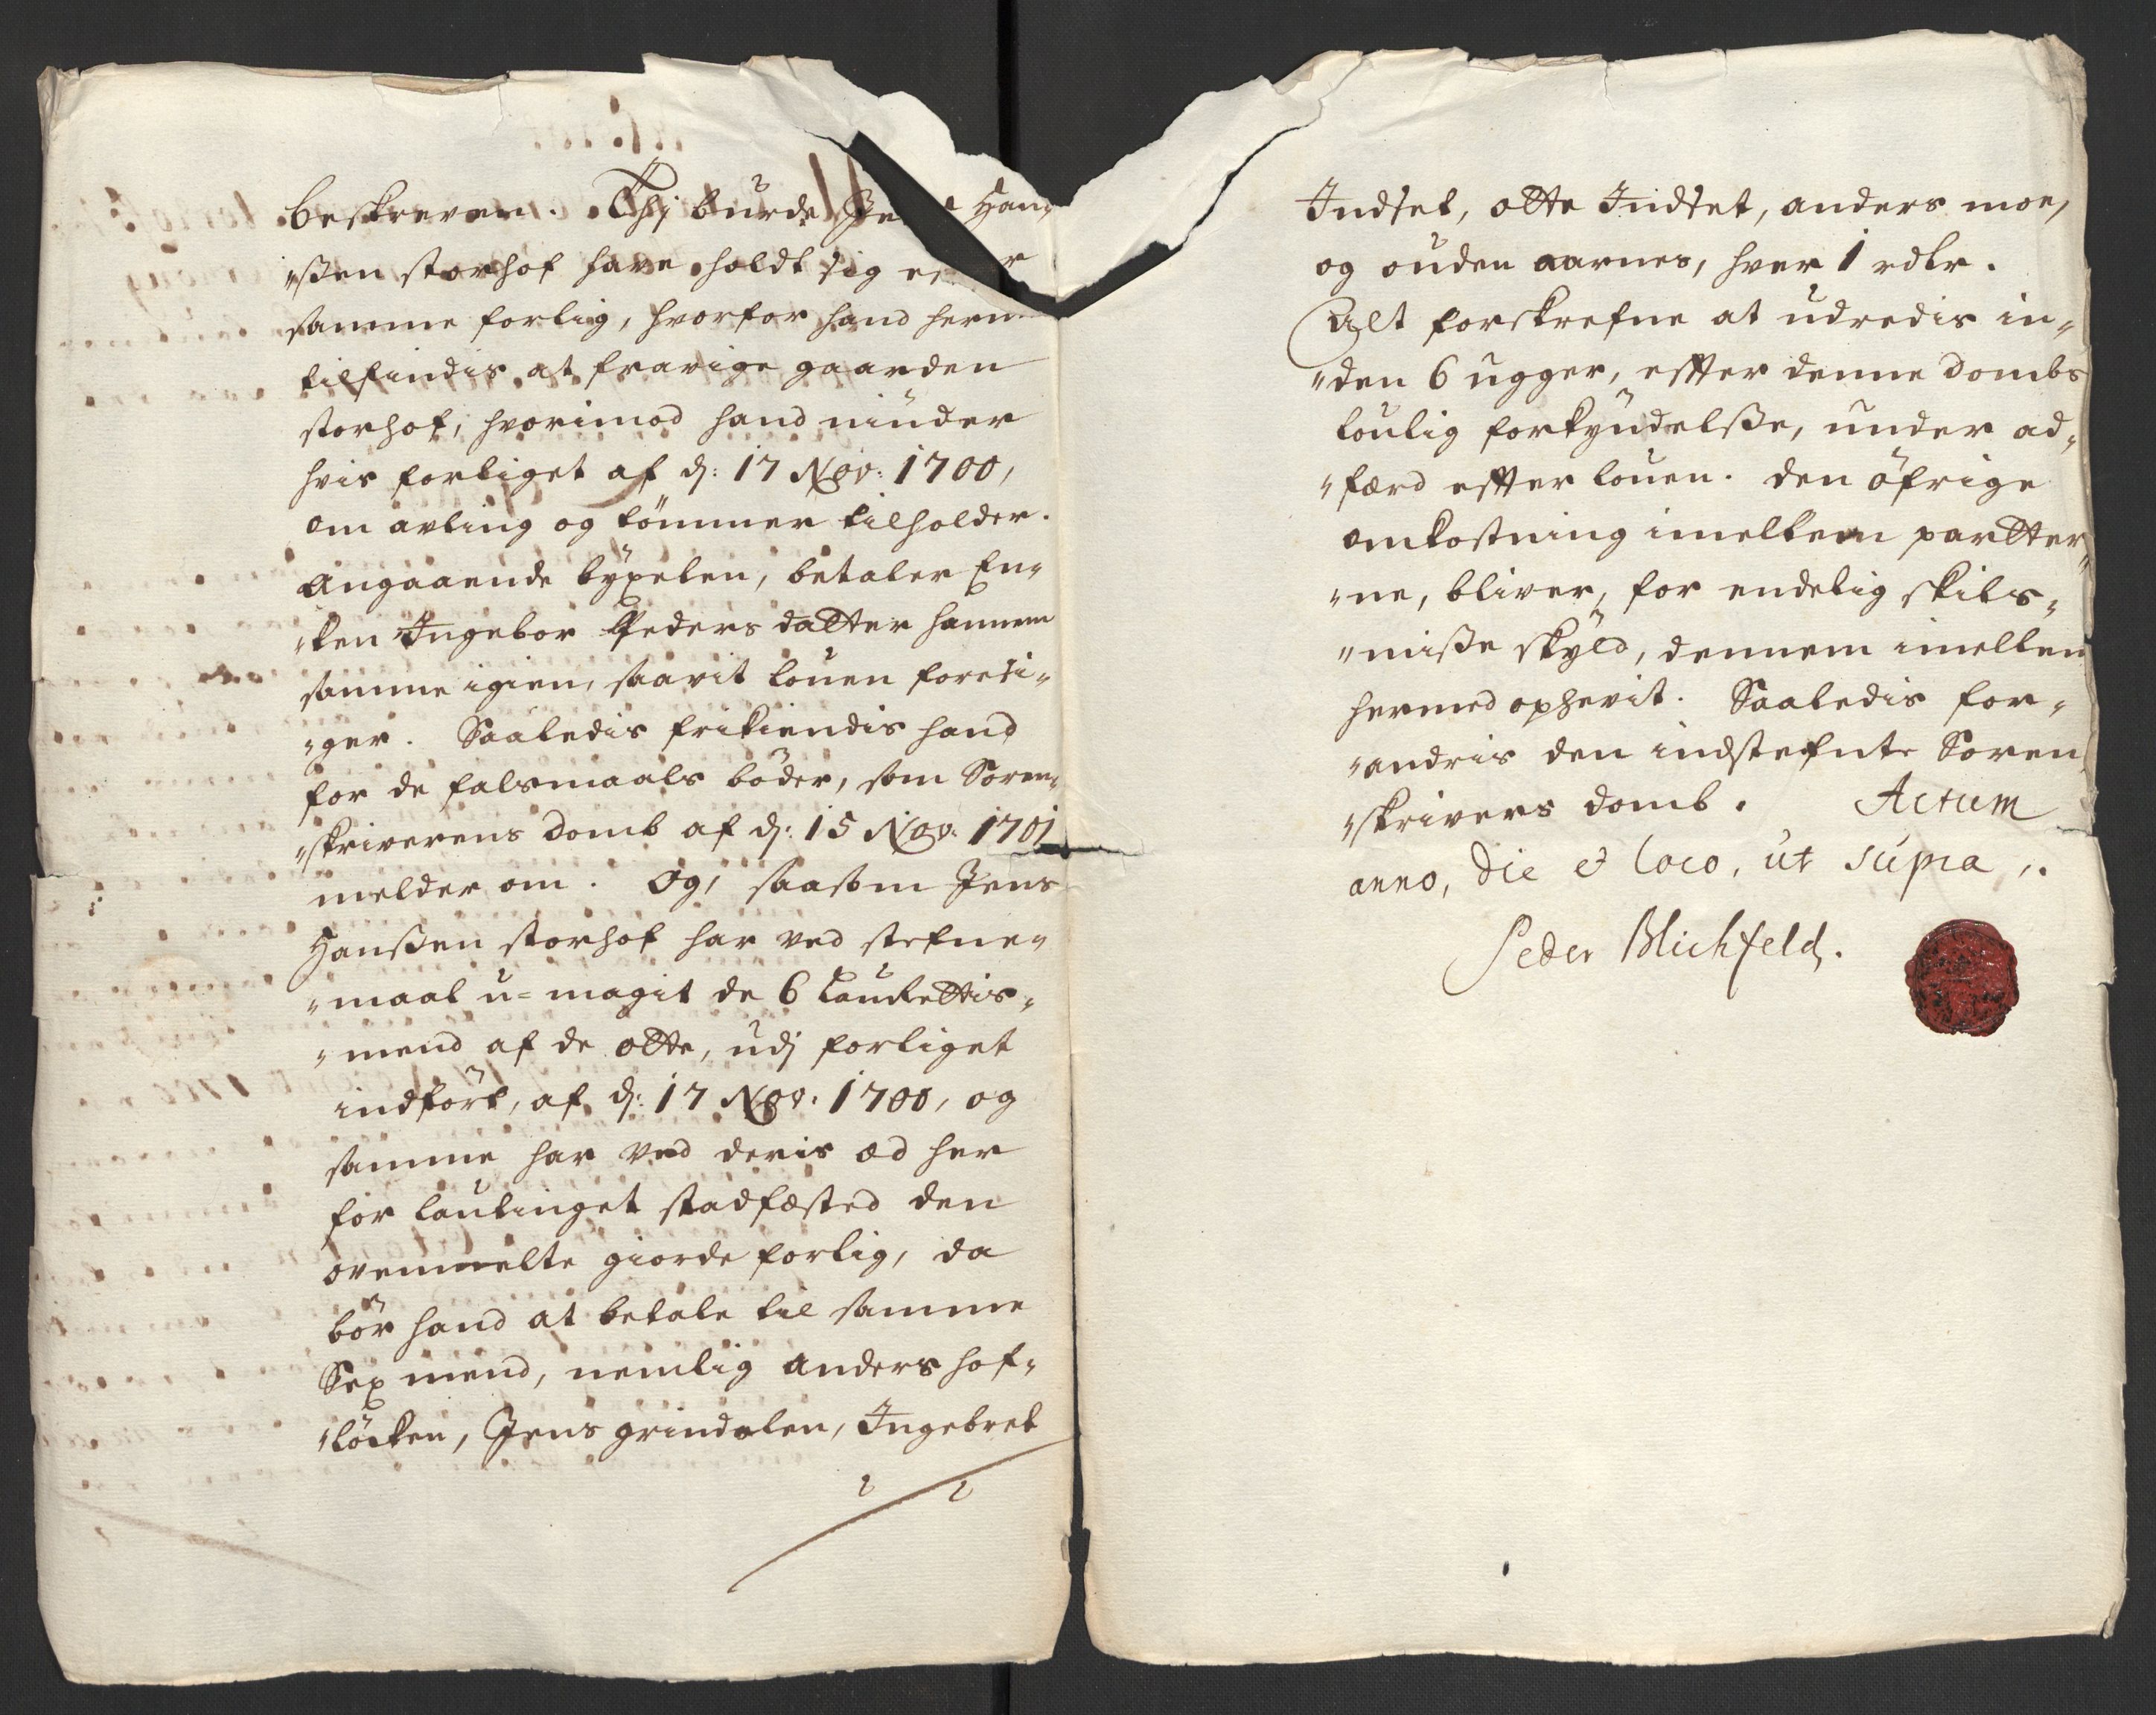 beskreven. Thj burde Jens Han„
„ßen storhof have holdt sig efter
samme forlig, hvorfor hand herm
tilfindis at fravige gaarden
storhof, hvorimod hand niuder
hvis forliget af d: 17 Nov: 1700,
om avling og tömmer tilholder.
Angaaende byxelen, betaler En„
„ken Ingebor Peders datter hannem
samme igien, saavit louen foresi„
„ger. Saaledis frikiendis hand
for de falsmaals böder, som Soren„
„skriverens domb af d: 15 Nov: 1701
melder om. Og, saasom Jens
Hanßen storhof har ved stefne„
„maal u= magit de 6 Laurettis„
„mend af de otte, udj forliget
indfört, af d: 17 Nov: 1700, og
samme har ved deris æd her
for lautinget stadfæsted den
ovenmelte giorde forlig, da
bör hand at betale til samme
Sex mend, nemlig Anders hof„
„löcken, Jens grindalen, Ingebret
Indset, otte Indset, anders moe,
og ouden aarnes, hver 1 rdlr.
Alt forskrefne at udredis in„
„den 6 ugger, effter denne dombs
loulig forkyndelße, under ad„
„færd effter louen. den öfrige
omkostning imellem partter„
„ne, bliver, for endelig skils„
„miße skyld, dennem imellem
hermed ophevit. Saaledis for„
„andris den indstefnte Soren
„skrivers domb. Actum
anno, die & loco, ut supra ,.
Peder Blichfeld.